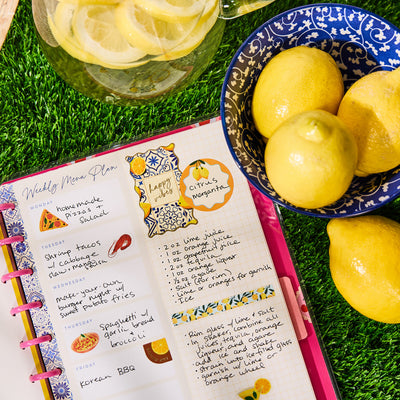 Weekly Menu Plan
MONDAY
homemade
pizzas +
salad
TUESDAY
shrimp tacos
w/ cabbage
slaw
WEDNESDAY
make-your-own
burger night w/
sweet potato fries
THURSDAY
Spaghetti w/
garlic bread
broccoli
FRIDAY
Korean BBQ
happy
citrus
margarita
• 2 oz lime juice
• 1 oz orange juice
• 1 oz grapefruit juice
• 2 oz tequila
• 1 oz orange liquor
• 1/2 oz agave
• Salt (for rim)
• Lime or oranges for garnish
• Ice
• Rim glass w/ lime + salt
• In shaker, combine all
juices, tequila, orange
liquor, and agave
• add ice and shake
• strain into ice-filled glass
• garnish w/ lime or
orange wheel